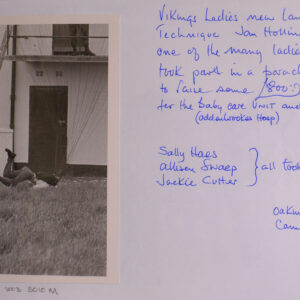 Vikings Ladies new Lan
Technique Jan Hollin
one of the many ladie
took part in a parac
to raise some
for the Baby care UNIT and
(addenbrookes Hosp)
Sally Haes
allison Swaep } all took
Jackie Cutter
Oakin
Cam